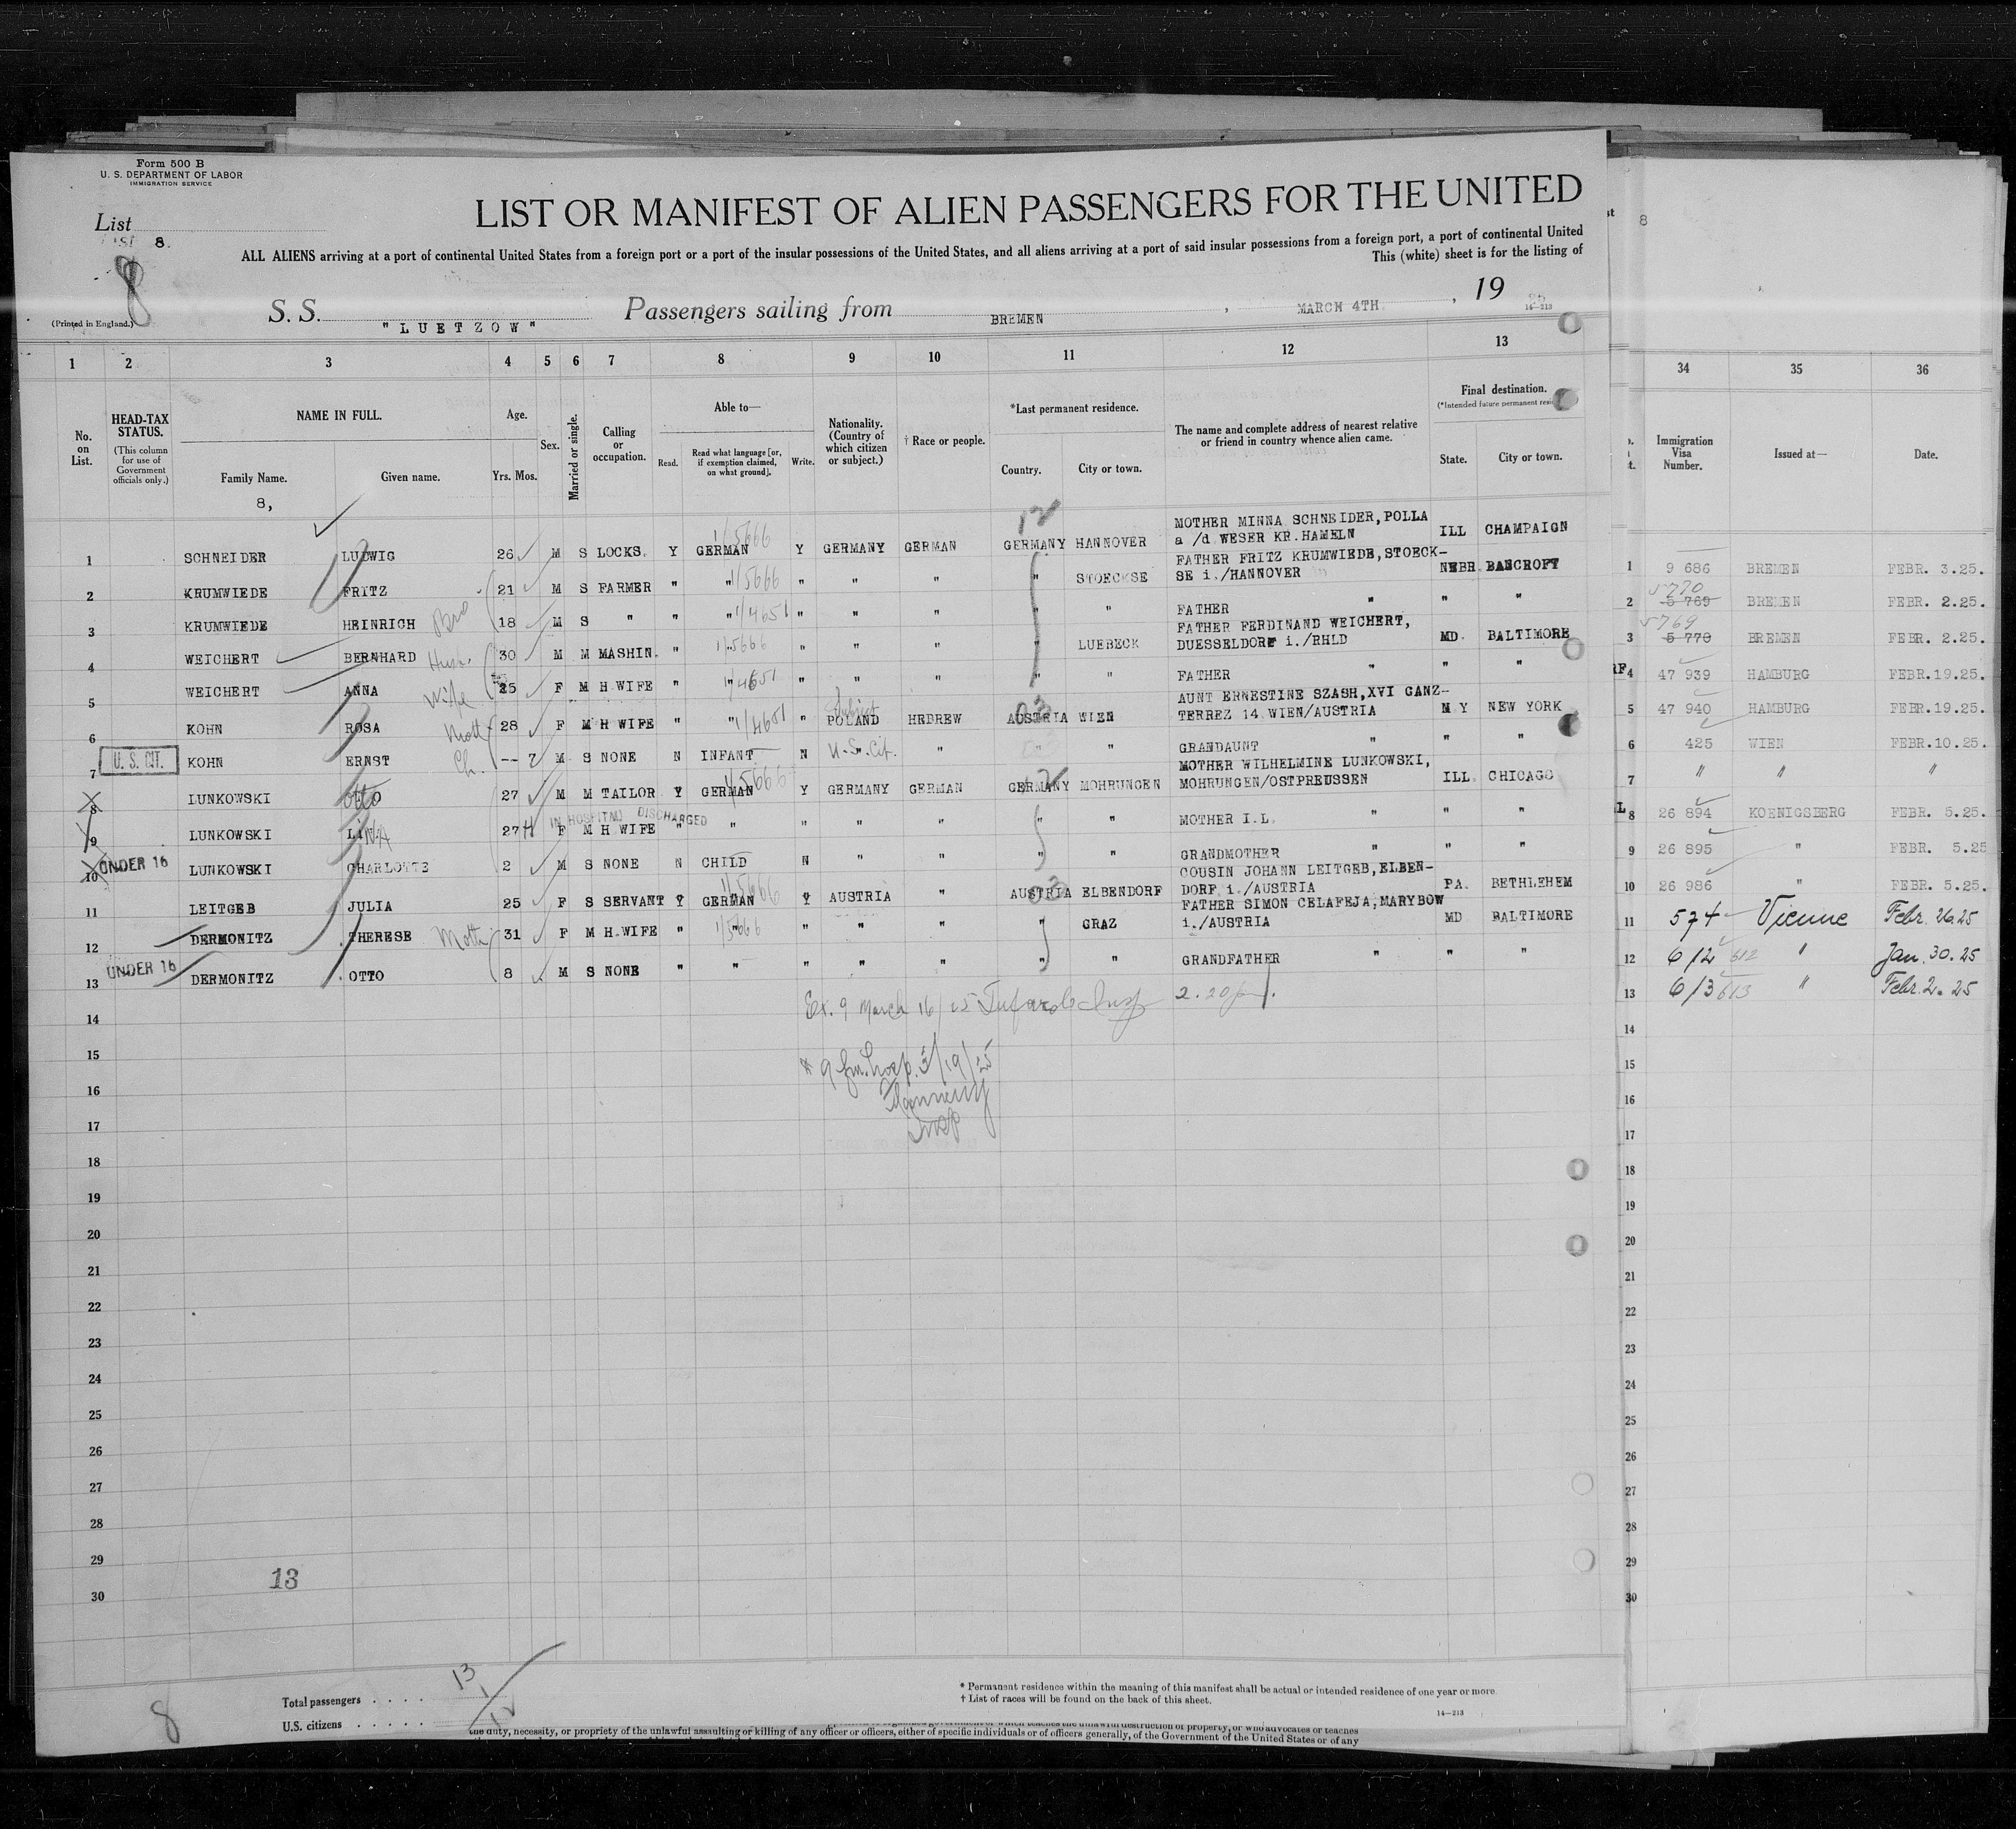 Form 500 B
U. S. DEPARTMENT OF LABOR
IMMIGRATION SERVICE
List
LIST 8.
8
LIST OR MANIFEST OF ALIEN PASSENGERS FOR THE UNITED
ALL ALIENS arriving at a port of continental United States from a foreign port or a port of the insular possessions of the United States, and all aliens arriving at a port of said insular possessions from a foreign port, a port of continental United
This (white) sheet is for the listing of
(Printed in England.)
S. S. "LUETZOW" Passengers sailing from BREMEN , MARCH 4TH. , 19 25
14—213
1 2 3 4 5 6 7 8 9 10 11 12 13
No. on List.
HEAD-TAX STATUS.
(This column for use of Government officials only.)
NAME IN FULL.
Family Name.
Given name.
8,
Age.
Yrs. Mos.
Sex.
Married or single.
Calling or occupation.
Able to—
Read.
Read what language [or, if exemption claimed, on what ground].
Write.
Nationality. (Country of which citizen or subject.)
† Race or people.
*Last permanent residence.
Country.
City or town.
The name and complete address of nearest relative or friend in country whence alien came.
Final destination.
(*Intended future permanent resi
State.
City or town.
12
1 SCHNEIDER LUDWIG 26 M S LOCKS. Y GERMAN 1/5666 Y GERMANY GERMAN GERMANY HANNOVER MOTHER MINNA SCHNEIDER, POLLA a /d WESER KR. HAMELN ILL CHAMPAIGN
2 KRUMWIEDE FRITZ 21 M S FARMER " " 1/5666 " " " " STOECKSE FATHER FRITZ KRUMWIEDE, STOECK-SE i./HANNOVER NEBR. BANCROFT
3 KRUMWIEDE HEINRICH Bro 18 M S " " " 1/4651 " " " " " FATHER " " "
4 WEICHERT BERNHARD Husb. 30 M M MASHIN. " " 1/5666 " " " " LUEBECK FATHER FERDINAND WEICHERT, DUESSELDORF i./RHLD MD. BALTIMORE
5 WEICHERT ANNA Wife 25 F M H WIFE " " 1/4651 " " " " " FATHER " " "
6 KOHN ROSA Moth 28 F M H WIFE " " 1/4651 " Subject POLAND HEBREW AUSTRIA 03 WIEN AUNT ERNESTINE SZASH, XVI GANZ-TERREZ 14 WIEN/AUSTRIA N Y NEW YORK
7 U. S. CIT. KOHN ERNST Ch. -- 7 M S NONE N INFANT N U.S. Cit. " " " GRANDAUNT " " "
8 LUNKOWSKI OTTO Otto 27 M M TAILOR Y GERMAN 1/5666 Y GERMANY GERMAN GERMANY 12 MOHRUNGEN MOTHER WILHELMINE LUNKOWSKI, MOHRUNGEN/OSTPREUSSEN ILL. CHICAGO
IN HOSPITAL DISCHARGED
9 LUNKOWSKI LINA 27 H F M H WIFE " " " " " " " MOTHER I.L. " " "
10 UNDER 16 LUNKOWSKI CHARLOTTE 2 M S NONE N CHILD N " " " " GRANDMOTHER " " "
11 LEITGEB JULIA 25 F S SERVANT Y GERMAN 1/5666 Y AUSTRIA " AUSTRIA 03 ELBENDORF COUSIN JOHANN LEITGEB, ELBEN-DORF i./AUSTRIA PA. BETHLEHEM
12 DERMONITZ THERESE Moth 31 F M H.WIFE " " 1/5666 " " " " GRAZ FATHER SIMON CELAFEJA, MARYBOW i./AUSTRIA MD. BALTIMORE
13 UNDER 16 DERMONITZ OTTO 8 M S NONE " " " " " " " GRANDFATHER " " "
Ex. 9 March 16/25 Insp 2.20 p
14
* 9 fm. hosp. 3/19/25
15
16
Insp
17
18
19
20
21
22
23
24
25
26
27
28
29
13
30
8
Total passengers . . . . 13
U.S. citizens . . . . . 1
12
* Permanent residence within the meaning of this manifest shall be actual or intended residence of one year or more.
† List of races will be found on the back of this sheet.
14—213
the duty, necessity, or propriety of the unlawful assaulting or killing of any officer or officers, either of specific individuals or of officers generally, of the Government of the United States or of any
st 8
34 35 36
Immigration Visa Number.
Issued at—
Date.
1 9 686 BREMEN FEBR. 3.25.
2 5 769 5770 BREMEN FEBR. 2.25.
3 5 770 5769 BREMEN FEBR. 2.25.
4 47 939 HAMBURG FEBR.19.25.
5 47 940 HAMBURG FEBR.19.25.
6 425 WIEN FEBR.10.25.
7 " " "
8 26 894 KOENIGSBERG FEBR. 5.25.
9 26 895 " FEBR. 5.25
10 26 986 " FEBR. 5.25.
11 574 Vienne Febr. 26.25
12 612 612 " Jan. 30. 25
13 613 613 " Febr. 2. 25
14
15
16
17
18
19
20
21
22
23
24
25
26
27
28
29
30